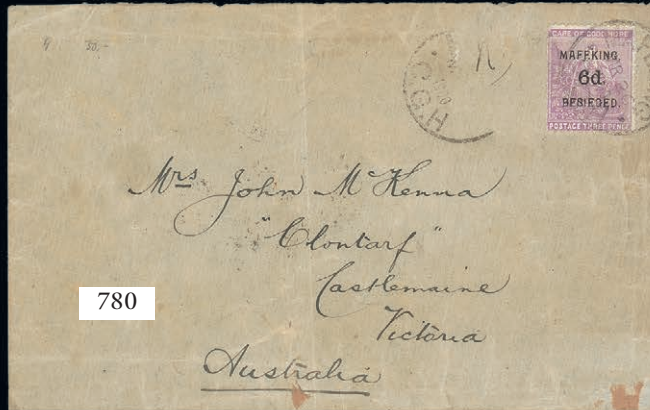 30.-
C.G.H
CAPE OF GOOD HOPE
MAFEKING,
6d.
BESIEGED.
POSTAGE THREE PENCE
Mrs John McKenna
"Clontarf"
Castlemaine
Victoria
Australia
780